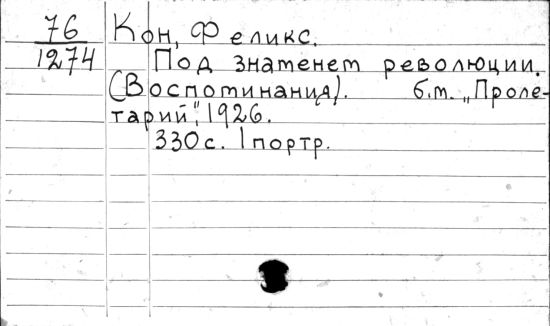 76
1274
Кон, Феликс.
Под знаменем революции.
(Воспоминания). б.м. „Проле-
тарий", 1926.
330 с. 1 портр.